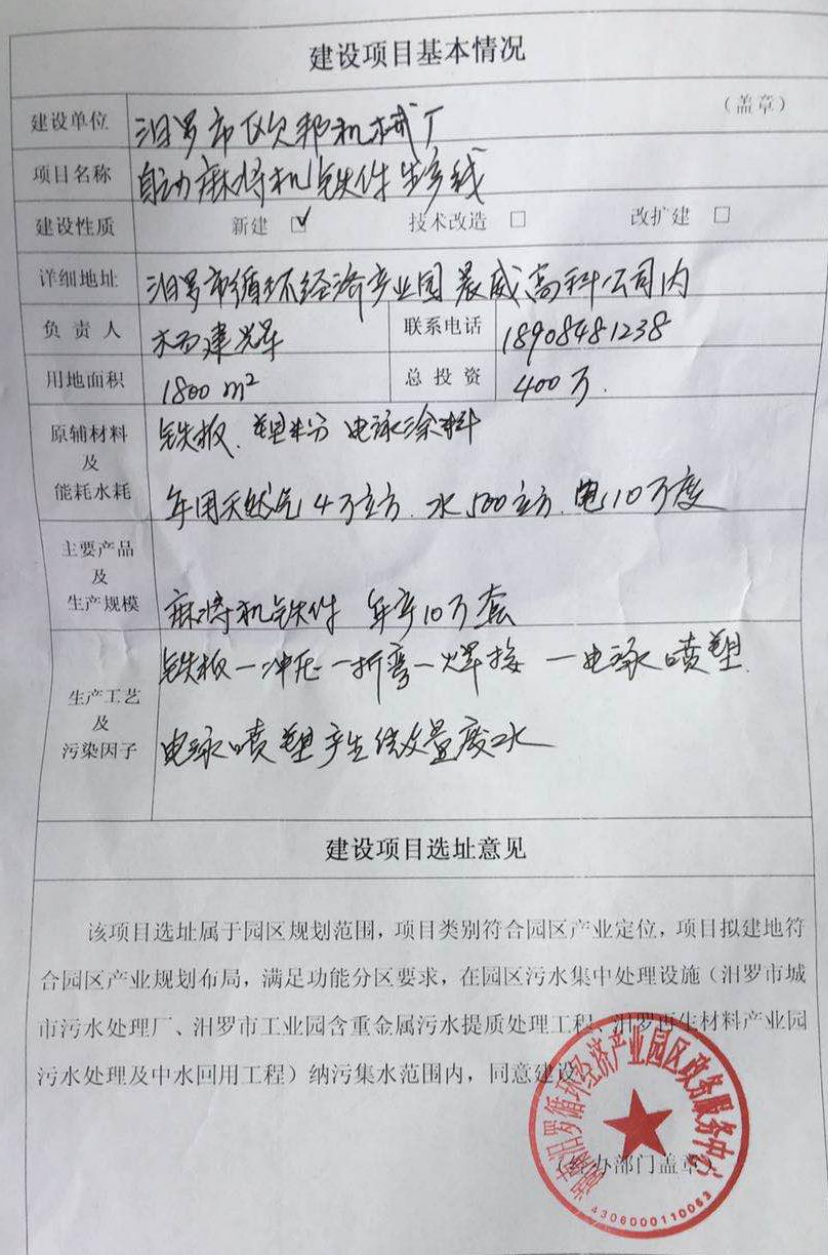 建设项目基本情况
建设单位 汨罗市欧邦机械厂 （盖章）
项目名称 自动麻将机铁件生产线
建设性质 新建 ☑ 技术改造 □ 改扩建 □
详细地址 汨罗市循环经济产业园晨威高科公司内
负责人 建辉 联系电话 18908481238
用地面积 1800 m² 总投资 400万.
原辅材料
及
能耗水耗
铁板、塑粉 电泳涂料
年用天然气4万立方. 水500立方. 电10万度
主要产品
及
生产规模
麻将机铁件 年产10万套
生产工艺
及
污染因子
铁板—冲压—折弯—焊接—电泳喷塑.
电泳喷塑产生微量废水
建设项目选址意见
该项目选址属于园区规划范围，项目类别符合园区产业定位，项目拟建地符
合园区产业规划布局，满足功能分区要求，在园区污水集中处理设施（汨罗市城
市污水处理厂、汨罗市工业园含重金属污水提质处理工程、汨罗再生材料产业园
污水处理及中水回用工程）纳污集水范围内，同意建设
（经办部门盖章）
湖南汨罗循环经济产业园区政务服务中心
4306000110063